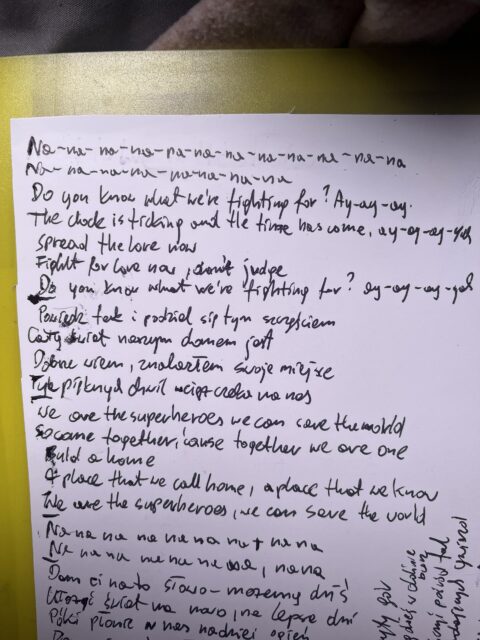 Na-na-na-na-na-na-na-na-na-na-na-na
Na-na-na-na-na-na-na-na
Do you know what we're fighting for? Ay-ay-ay.
The clock is ticking and the time has come, ay-ay-ay-yeh
spread the love now
Fight for love now, don't judge
Do you know what we're fighting for? ay-ay-ay-yeh
Powiedz tak i podziel się tym szczęściem
Cały świat naszym domem jest
Dobrze wiem, znalazłem swoje miejsce
Tyle pięknych chwil wciąż czeka na nas
We are the superheroes we can save the world
So come together, 'cause together we are one
Build a home
A place that we call home, a place that we know
We are the superheroes, we can save the world
Na na na na na na na na na
Na na na na na na na, na na
Dam ci na to słowo - możemy dziś
świat na nowo, na lepsze dni
Póki płonie w nas nadziei ogień